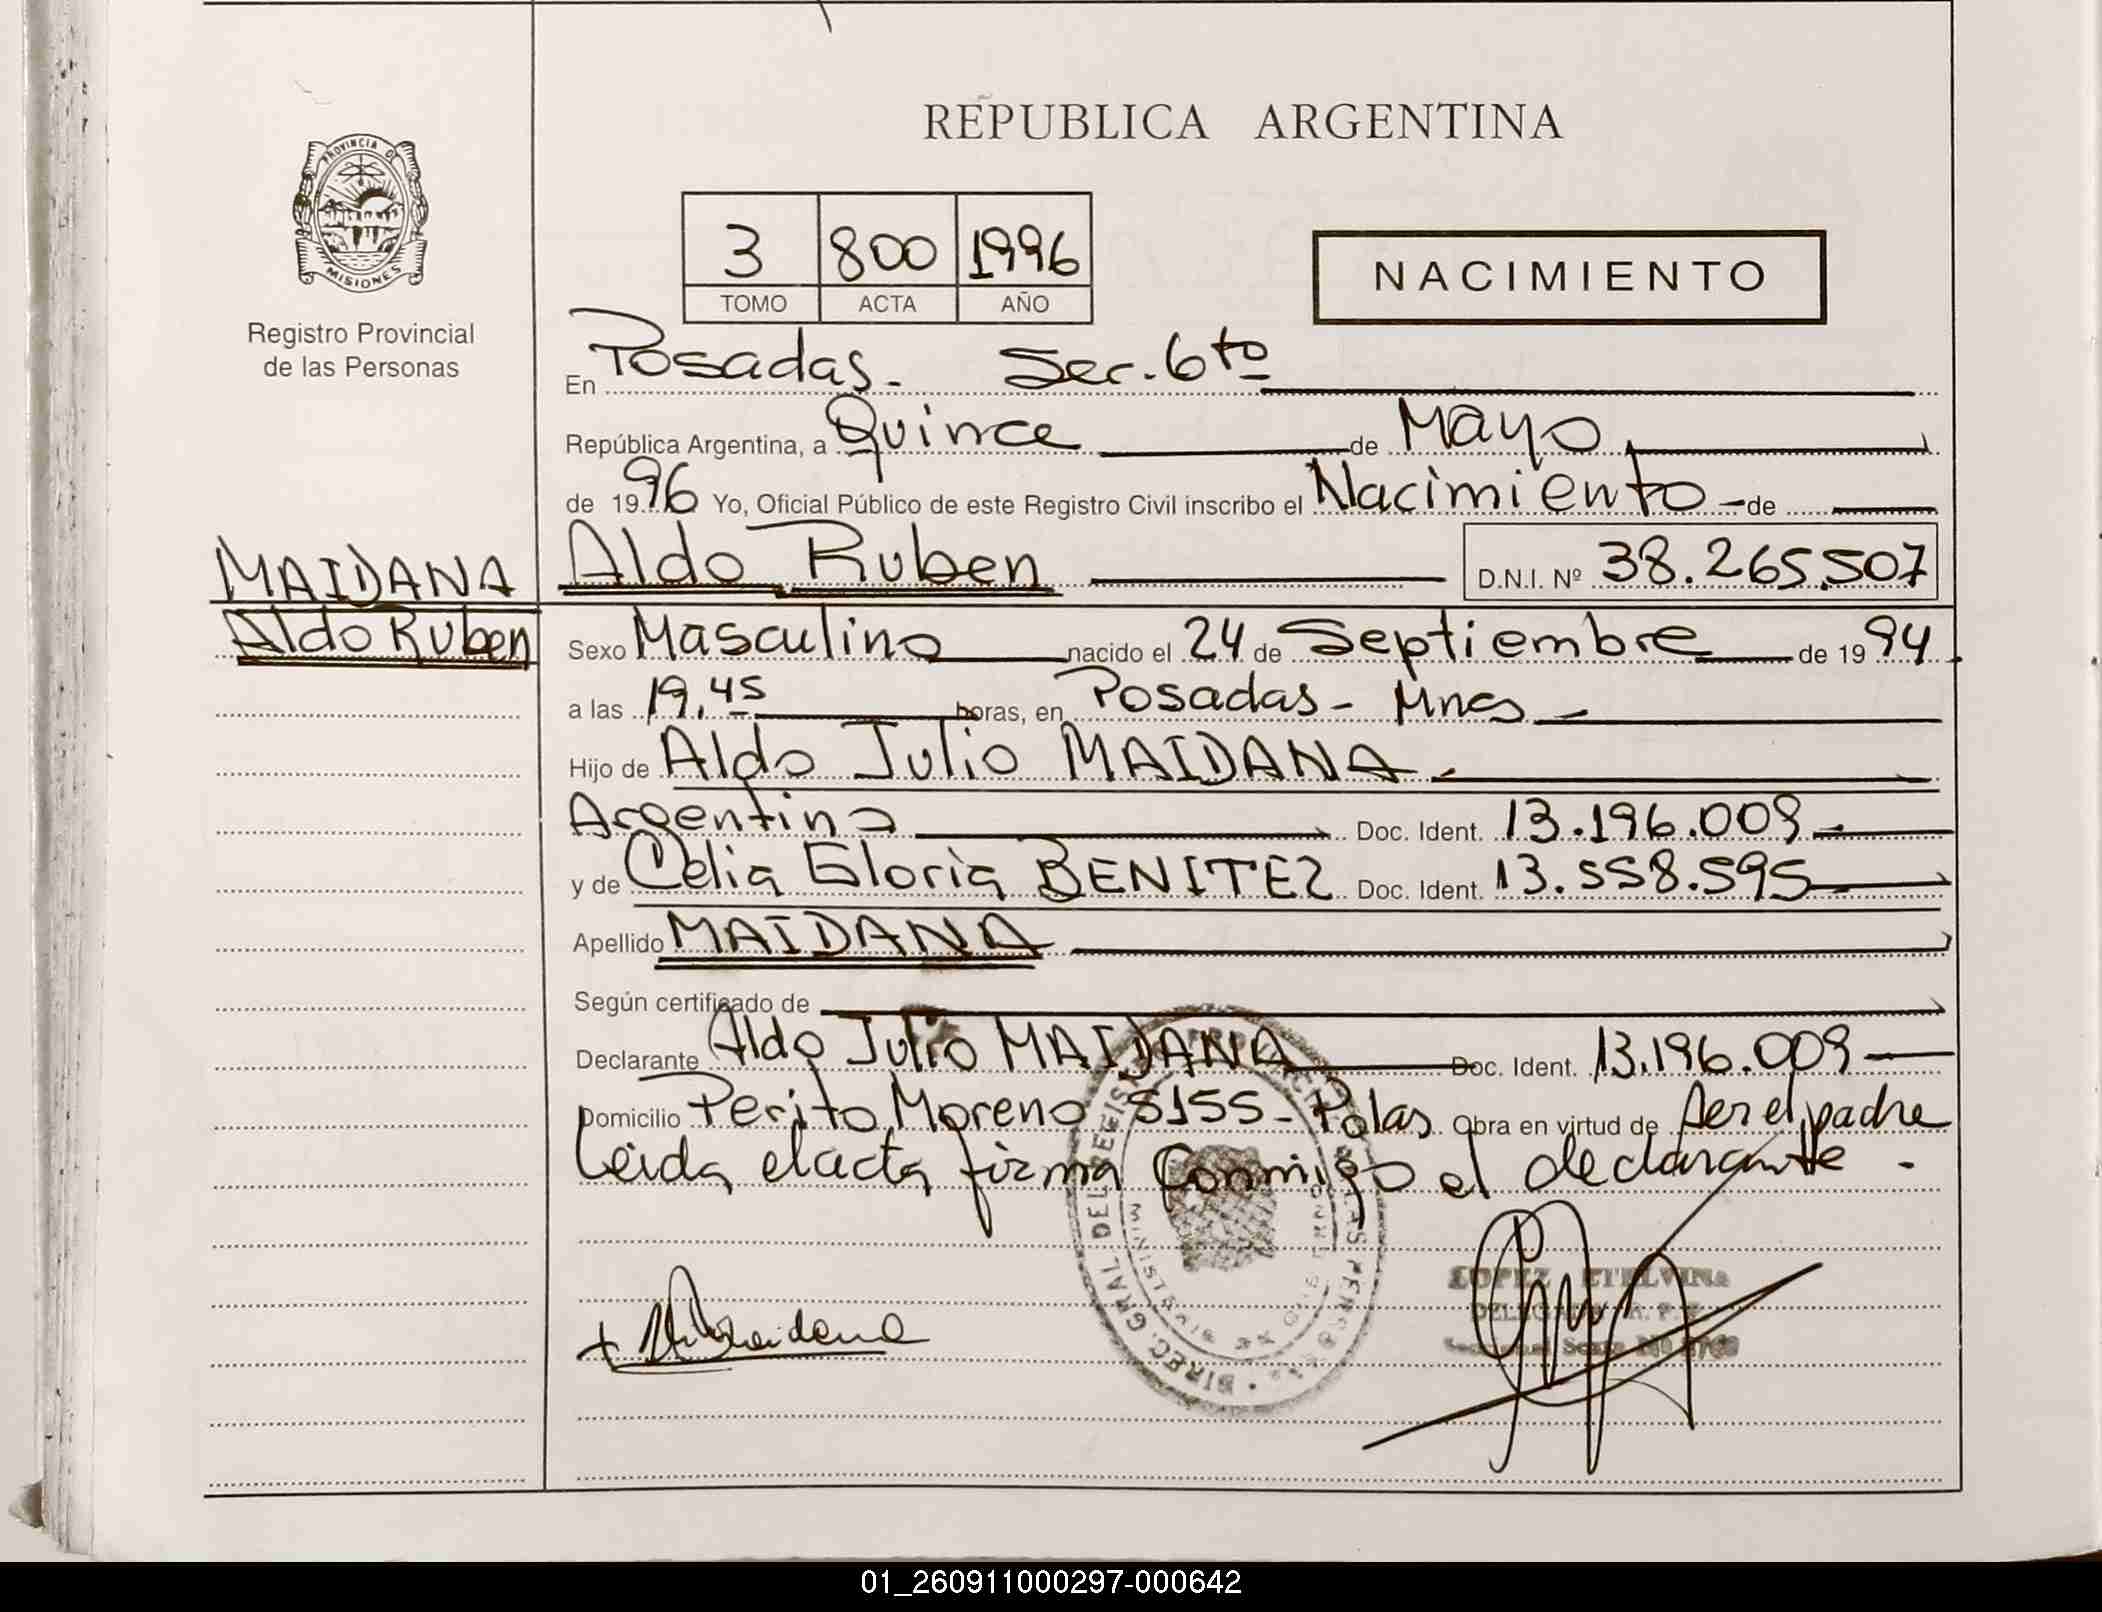 REPUBLICA ARGENTINA
PROVINCIA DE
MISIONES
Registro Provincial
de las Personas
3 800 1996
TOMO ACTA AÑO
NACIMIENTO
En Posadas. Sec. 6to
República Argentina, a Quince de Mayo
de 1996 Yo, Oficial Público de este Registro Civil inscribo el Nacimiento - de
MAIDANA
Aldo Ruben
Aldo Ruben D.N.I. Nº 38.265.507
Sexo Masculino nacido el 24 de Septiembre de 1994
a las 19,45 horas, en Posadas - Mnes
Hijo de Aldo Julio MAIDANA
Argentino Doc. Ident. 13.196.009
y de Celia Gloria BENITEZ Doc. Ident. 13.558.595
Apellido MAIDANA
Según certificado de
Declarante Aldo Julio MAIDANA Doc. Ident. 13.196.009
Domicilio Perito Moreno 5155 - Pdas Obra en virtud de Ser el padre
Leida el acta firma Conmigo el declarante.
DIREC. GRAL DEL REGIST
LAS PERSONAS
LOPEZ ETELVINA
DELEGADA R. P. P.
01_260911000297-000642